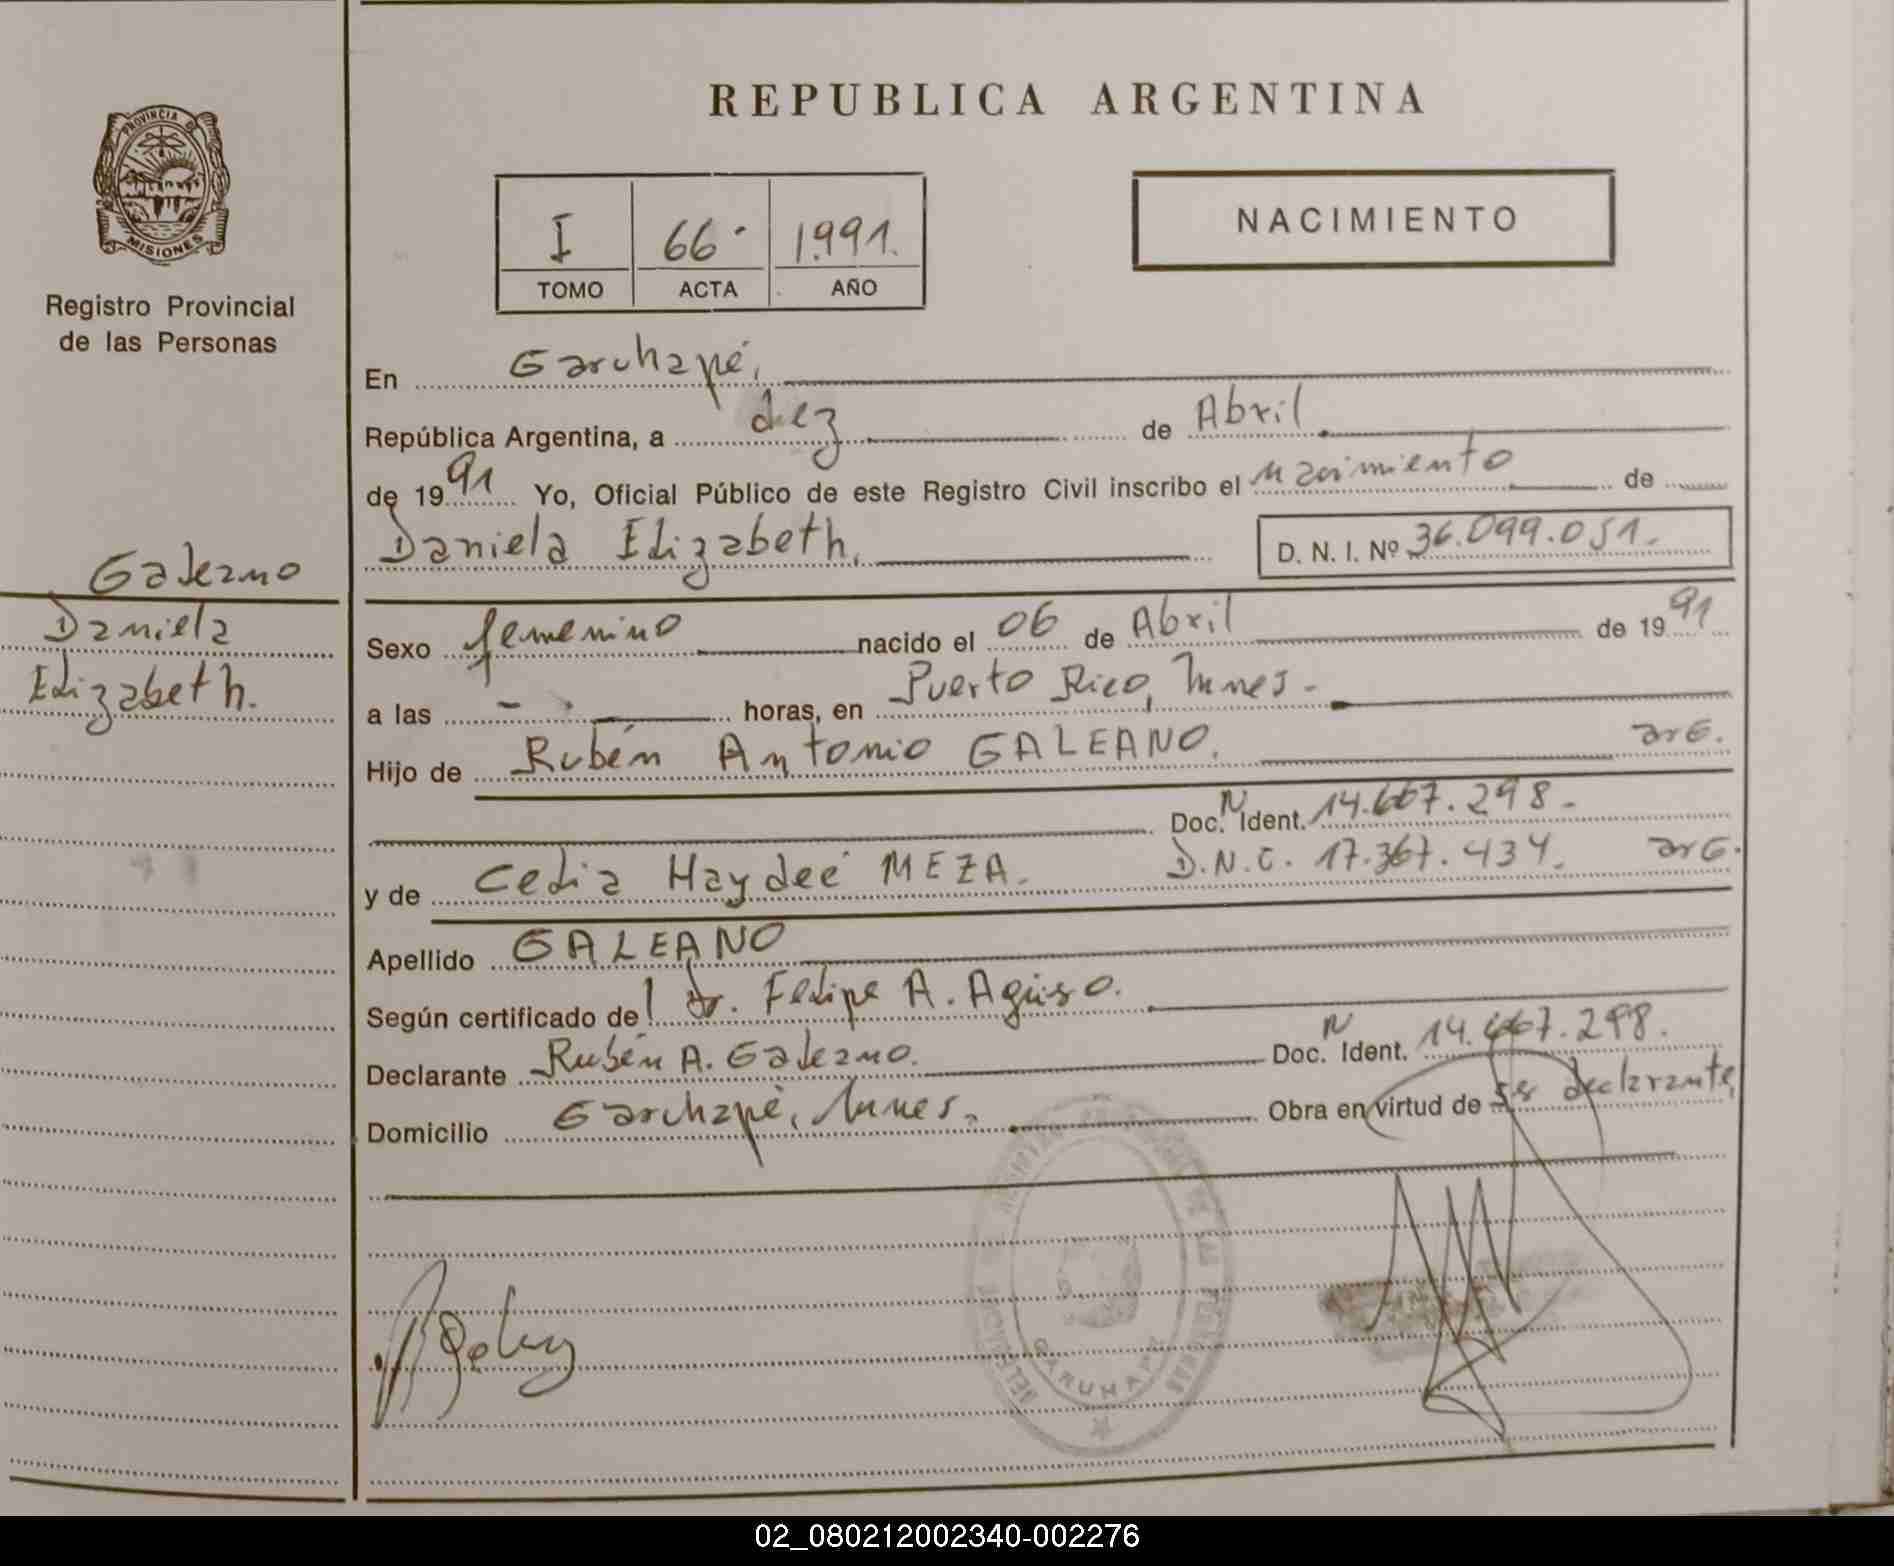 REPUBLICA ARGENTINA
PROVINCIA DE
MISIONES
Registro Provincial
de las Personas
I 66 1991.
TOMO ACTA AÑO
NACIMIENTO
En Garuhapé,
República Argentina, a diez de Abril
de 1991 Yo, Oficial Público de este Registro Civil inscribo el nacimiento de
Daniela Elizabeth. D. N. I. Nº 36.099.051.
Galeano
Daniela
Elizabeth.
Sexo femenino nacido el 06 de Abril de 1991
a las - horas, en Puerto Rico, Mnes.
Hijo de Rubén Antonio GALEANO. arg.
Doc. N Ident. 14.667.298.
y de Celia Haydeé MEZA. D.N.I. 17.367.434. arg.
Apellido GALEANO
Según certificado del dr. Felipe A.
Declarante Rubén A. Galeano. Doc. N Ident. 14.667.298.
Domicilio Garuhapé, Mnes. Obra en virtud de ser declarante,
GARUHAPE
02_080212002340-002276